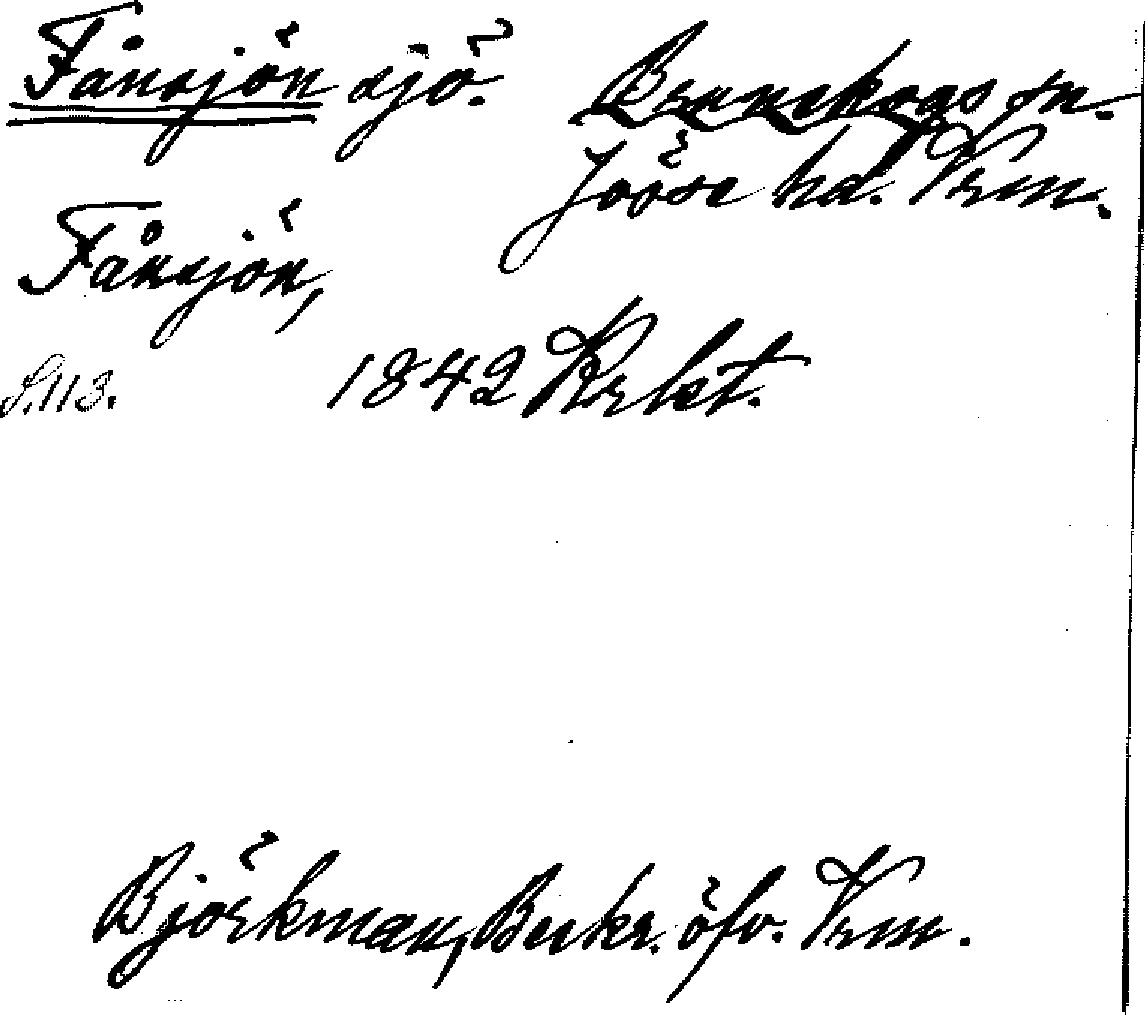 Fånsjön sjö. Brunskogs sn.
Jösse hd. Vrm.
Fånsjön,
S. 113. 1842 Krkt.
Björkman, Beskr. öfv. Vrm.